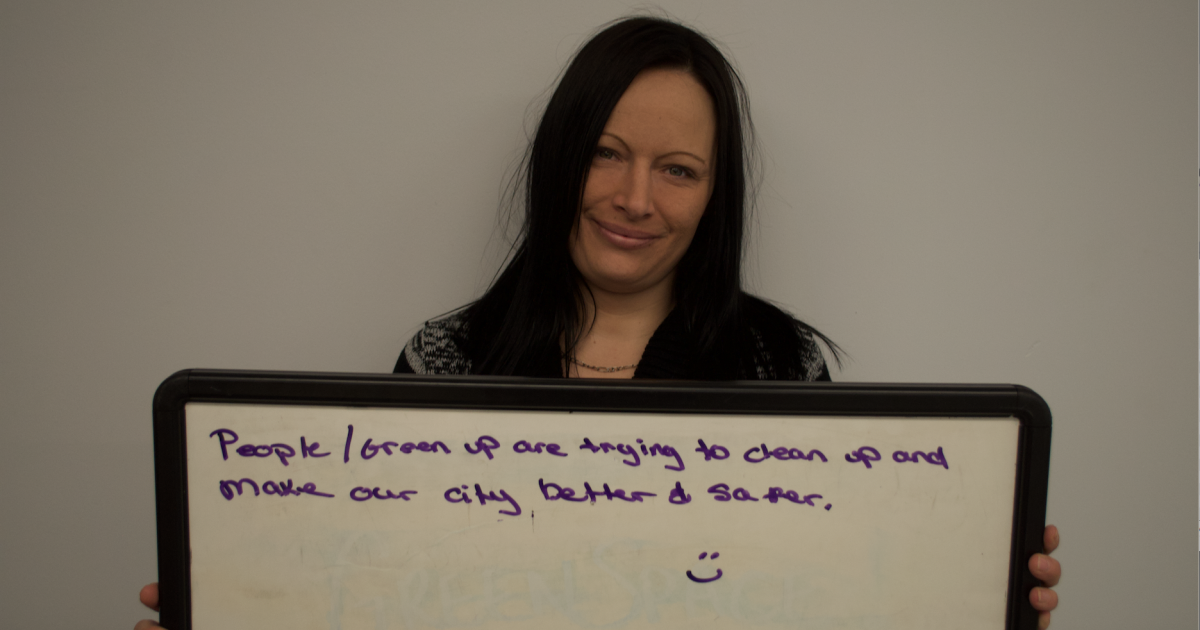 People / Green up are trying to clean up and
make our city better & safer.